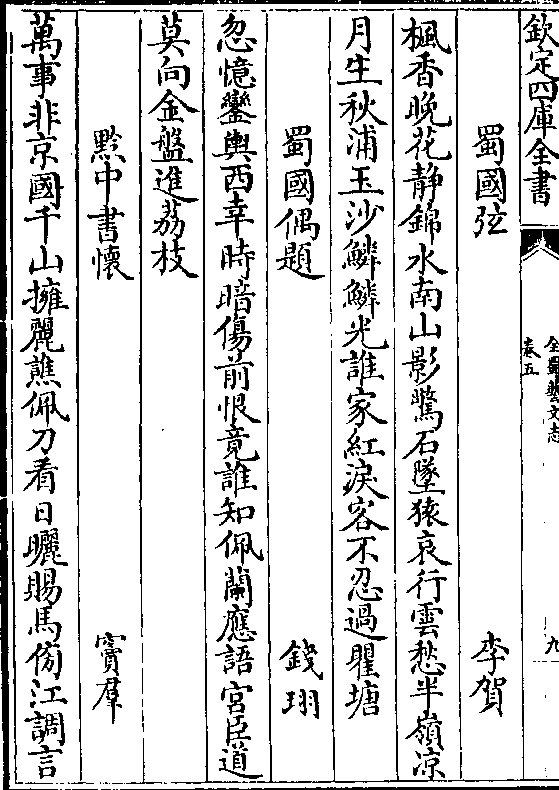 欽定四庫全書
全蜀藝文志
卷五
九
蜀國弦 李賀
楓香晚花静錦水南山影驚石墜猿哀行雲愁半嶺凉
月生秋浦玉沙鱗鱗光誰家紅淚客不忍過瞿塘
蜀國偶題 錢珝
忽憶鑾輿西幸時暗傷前恨竟誰知佩蘭應語宮臣道
莫向金盤進荔枝
黔中書懷 竇羣
萬事非京國千山擁麗譙佩刀看日曬賜馬傍江調言